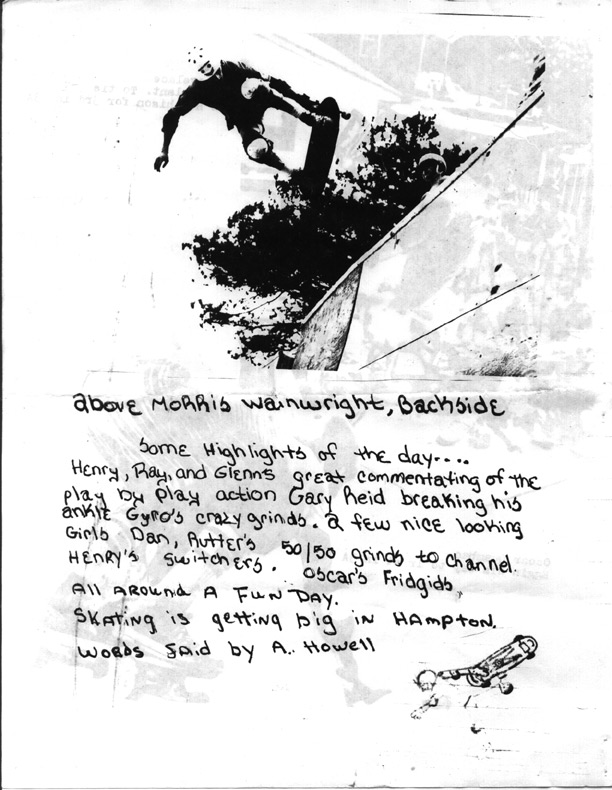 above Morris Wainwright, Backside
Some Highlights of the day....
Henry, Ray, and Glenns great commentating of the
play by play action Gary Reid breaking his
ankle Gyro's crazy grinds. a few nice looking
Girls Dan, Rutter's 50/50 grinds to channel.
HENRY'S Switchers. Oscar's Fridgids,
All Around A Fun Day.
Skating is getting big in Hampton.
Words Said by A. Howell